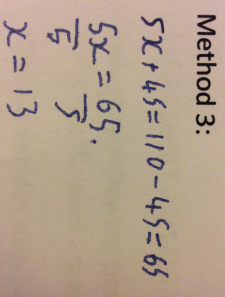 Method 3:
5x + 45 = 110 - 45 = 65
5x = 65.
5 5
x = 13